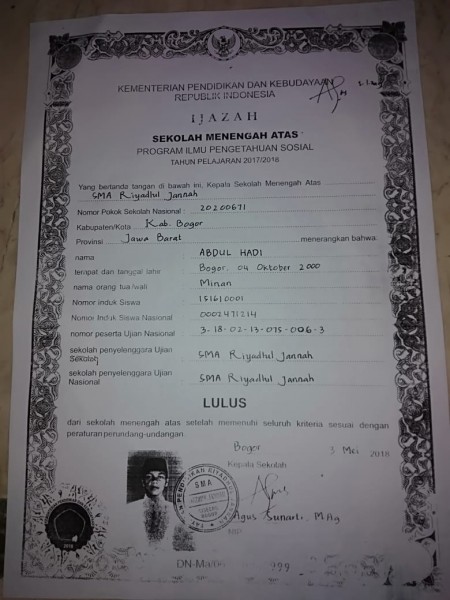 KEMENTERIAN PENDIDIKAN DAN KEBUDAYAAN
REPUBLIK INDONESIA
IJAZAH
SEKOLAH MENENGAH ATAS
PROGRAM ILMU PENGETAHUAN SOSIAL
TAHUN PELAJARAN 2017/2018
Yang bertanda tangan di bawah ini, Kepala Sekolah Menengah Atas
SMA Riyadhul Jannah
Nomor Pokok Sekolah Nasional : 20200671
Kabupaten/Kota Kab. Bogor
Provinsi Jawa Barat menerangkan bahwa:
nama ABDUL HADI
tempat dan tanggal lahir Bogor, 04 Oktober 2000
nama orang tua/wali Minan
Nomor induk Siswa 151610001
Nomor Induk Siswa Nasional 0002471214
nomor peserta Ujian Nasional 3-18-02-13-075-006-3
sekolah penyelenggara Ujian Sekolah SMA Riyadhul Jannah
sekolah penyelenggara Ujian Nasional SMA Riyadhul Jannah
LULUS
dari sekolah menengah atas setelah memenuhi seluruh kriteria sesuai dengan
peraturan perundang-undangan.
Bogor 3 Mei 2018
Kepala Sekolah
SMA
Agus Sunarti, M.Ag
NIP
DN-Ma/06 999